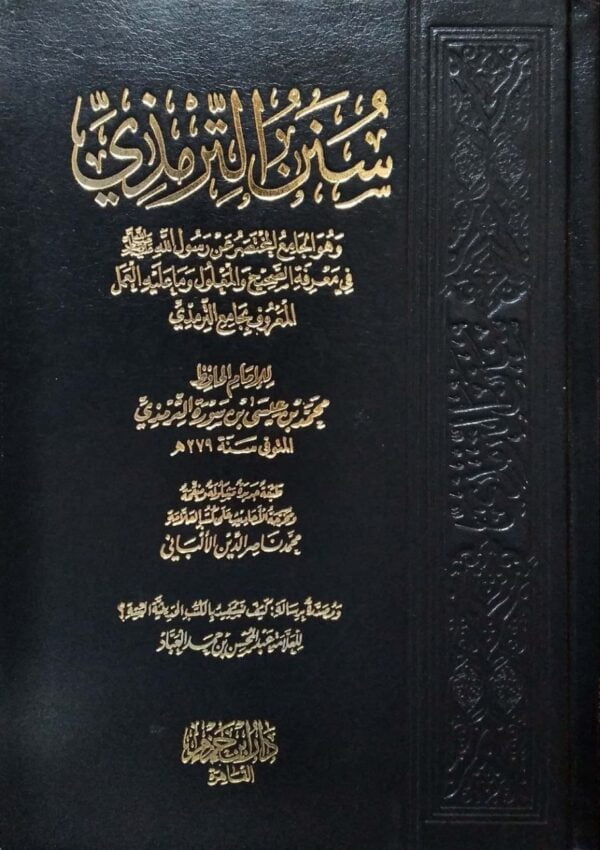 سُنَنُ التِّرْمِذِيِّ
وَهُوَ الجَامِعُ المُخْتَصَرُ عَنْ رَسُولِ اللهِ ﷺ
فِي مَعْرِفَةِ الصَّحِيحِ وَالمَعْلُولِ وَمَا عَلَيْهِ العَمَل
المَعْرُوفُ بِجَامِعِ التِّرْمِذِيِّ
لِلإِمَامِ الحَافِظِ
مُحَمَّد بْن عِيسَى بْن سَوْرَة التِّرْمِذِيِّ
المتوفى سَنَة ٢٧٩ هـ
طبعة
الأحاديث على كتب العلامة
محمد ناصر الدين الألباني
برسالة: كيف نستفيد بالكتب الحديثية الستة؟
للعلامة عبد المحسن بن حمد العباد
دار ابن حزم
القاهرة